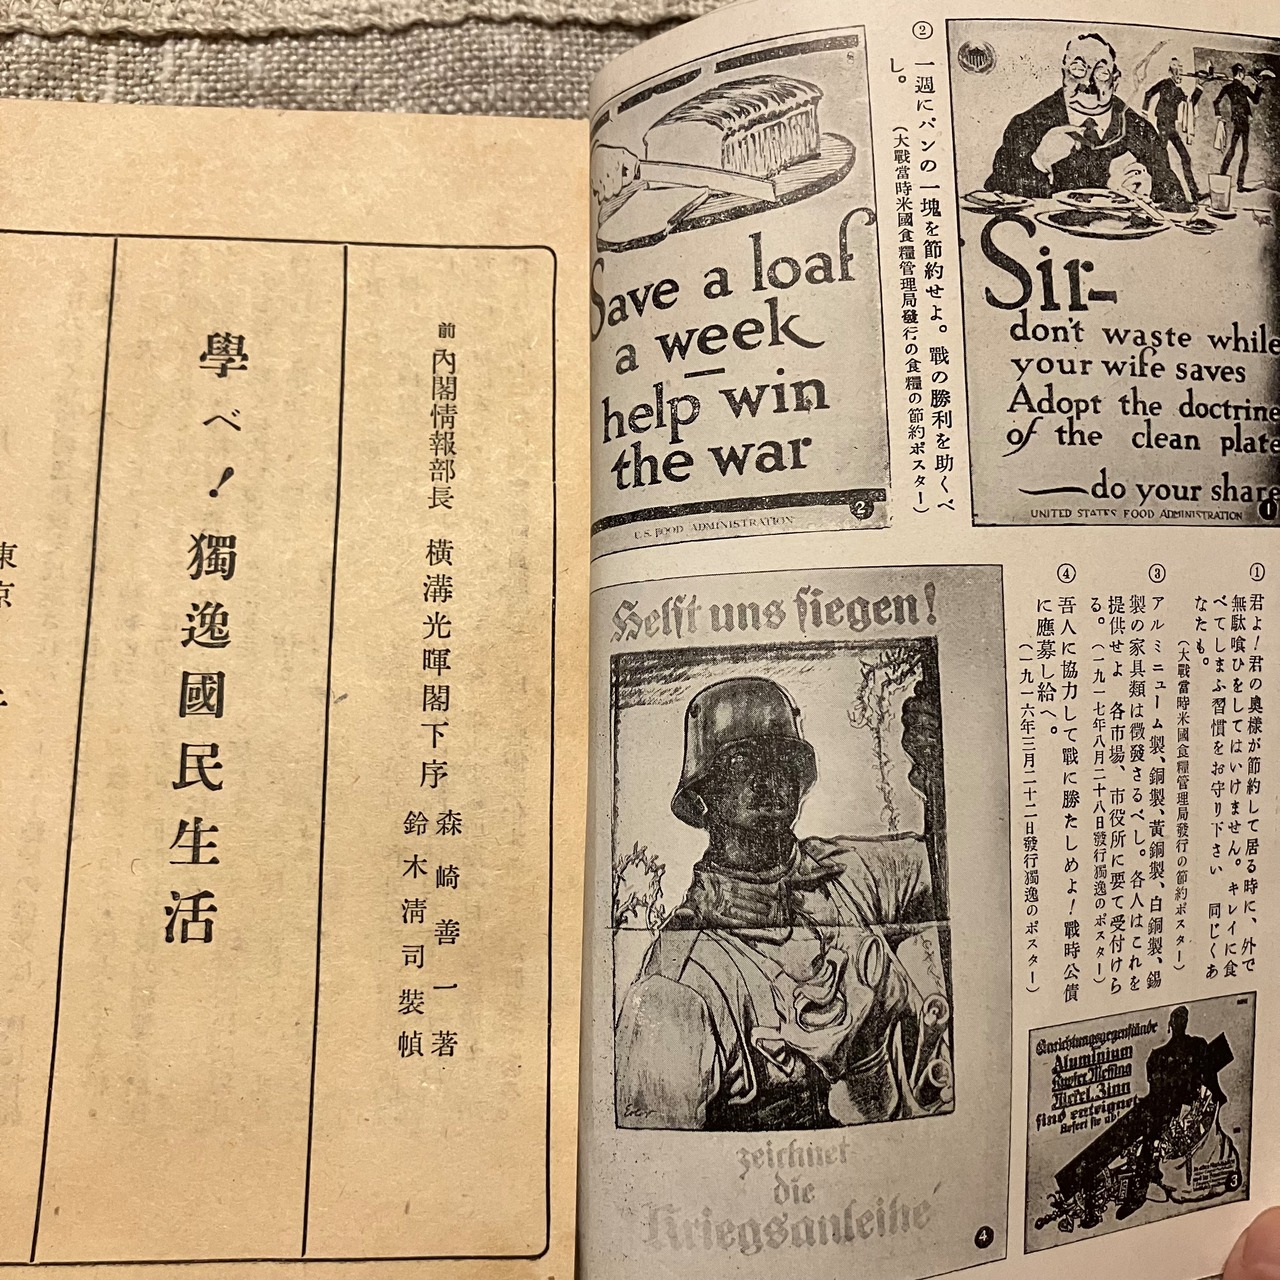 前 內閣情報部長 橫溝光暉閣下序
森崎善一著
鈴木淸司裝幀
學べ！獨逸國民生活
東京
Sir-
don't waste while
your wife saves
Adopt the doctrine
of the clean plate
do your share
UNITED STATES FOOD ADMINISTRATION
1
②
一週にパンの一塊を節約せよ。戰の勝利を助くべ
し。
（大戰當時米國食糧管理局發行の食糧の節約ポスター）
Save a loaf
a week
help win
the war
U.S. FOOD ADMINISTRATION
2
①
君よ！君の奧樣が節約して居る時に、外で
無駄喰ひをしてはいけません。キレイに食
べてしまふ習慣をお守り下さい 同じくあ
なたも。
（大戰當時米國食糧管理局發行の節約ポスター）
③
アルミニューム製、銅製、黃銅製、白銅製、錫
製の家具類は徵發さるべし。各人はこれを
提供せよ 各市場、市役所に要て受付けら
る。（一九一七年八月二十八日發行獨逸のポスター）
④
吾人に協力して戰に勝たしめよ！戰時公債
に應募し給へ。
（一九一六年三月二十二日發行獨逸のポスター）
Helft uns siegen!
Erler
zeichnet
die
Kriegsanleihe
4
Einrichtungsgegenstände
Aluminium
Kupfer Messing
Nickel Zinn
sind enteignet
Liefert sie ab!
3